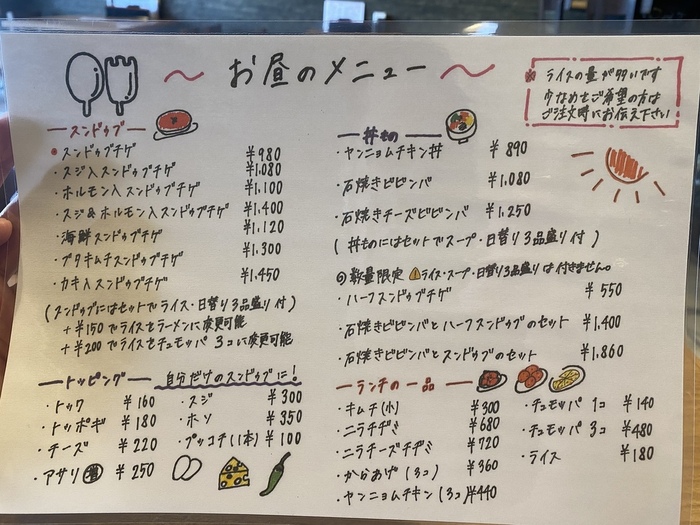 お昼のメニュー
ライスの量が多いです
少なめをご希望の方は
ご注文時にお伝え下さい
スンドゥブ
・スンドゥブチゲ ¥980
・スジ入スンドゥブチゲ ¥1,080
・ホルモン入スンドゥブチゲ ¥1,100
・スジ&ホルモン入スンドゥブチゲ ¥1,400
・海鮮スンドゥブチゲ ¥1,120
・ブタキムチスンドゥブチゲ ¥1,300
・カキ入スンドゥブチゲ ¥1,450
(スンドゥブにはセットでライス・日替り3品盛り付)
+¥150でライスをラーメンに変更可能
+¥200でライスをチュモッパ3コに変更可能
丼もの
・ヤンニョムチキン丼 ¥890
・石焼きビビンバ ¥1,080
・石焼きチーズビビンバ ¥1,250
(丼ものにはセットでスープ・日替り3品盛り付)
◎数量限定 ⚠ライス・スープ・日替り3品盛りは付きません。
・ハーフスンドゥブチゲ ¥550
・石焼きビビンバとハーフスンドゥブのセット ¥1,400
・石焼きビビンバとスンドゥブのセット ¥1,860
トッピング 自分だけのスンドゥブに!
・トック ¥160
・トッポギ ¥180
・チーズ ¥220
・アサリ増 ¥250
・スジ ¥300
・ホソ ¥350
・プッコチ(1本) ¥100
ランチの一品
・キムチ(小) ¥300
・ニラチヂミ ¥680
・ニラチーズチヂミ ¥720
・からあげ(3コ) ¥360
・ヤンニョムチキン(3コ) ¥440
・チュモッパ 1コ ¥140
・チュモッパ 3コ ¥480
・ライス ¥180